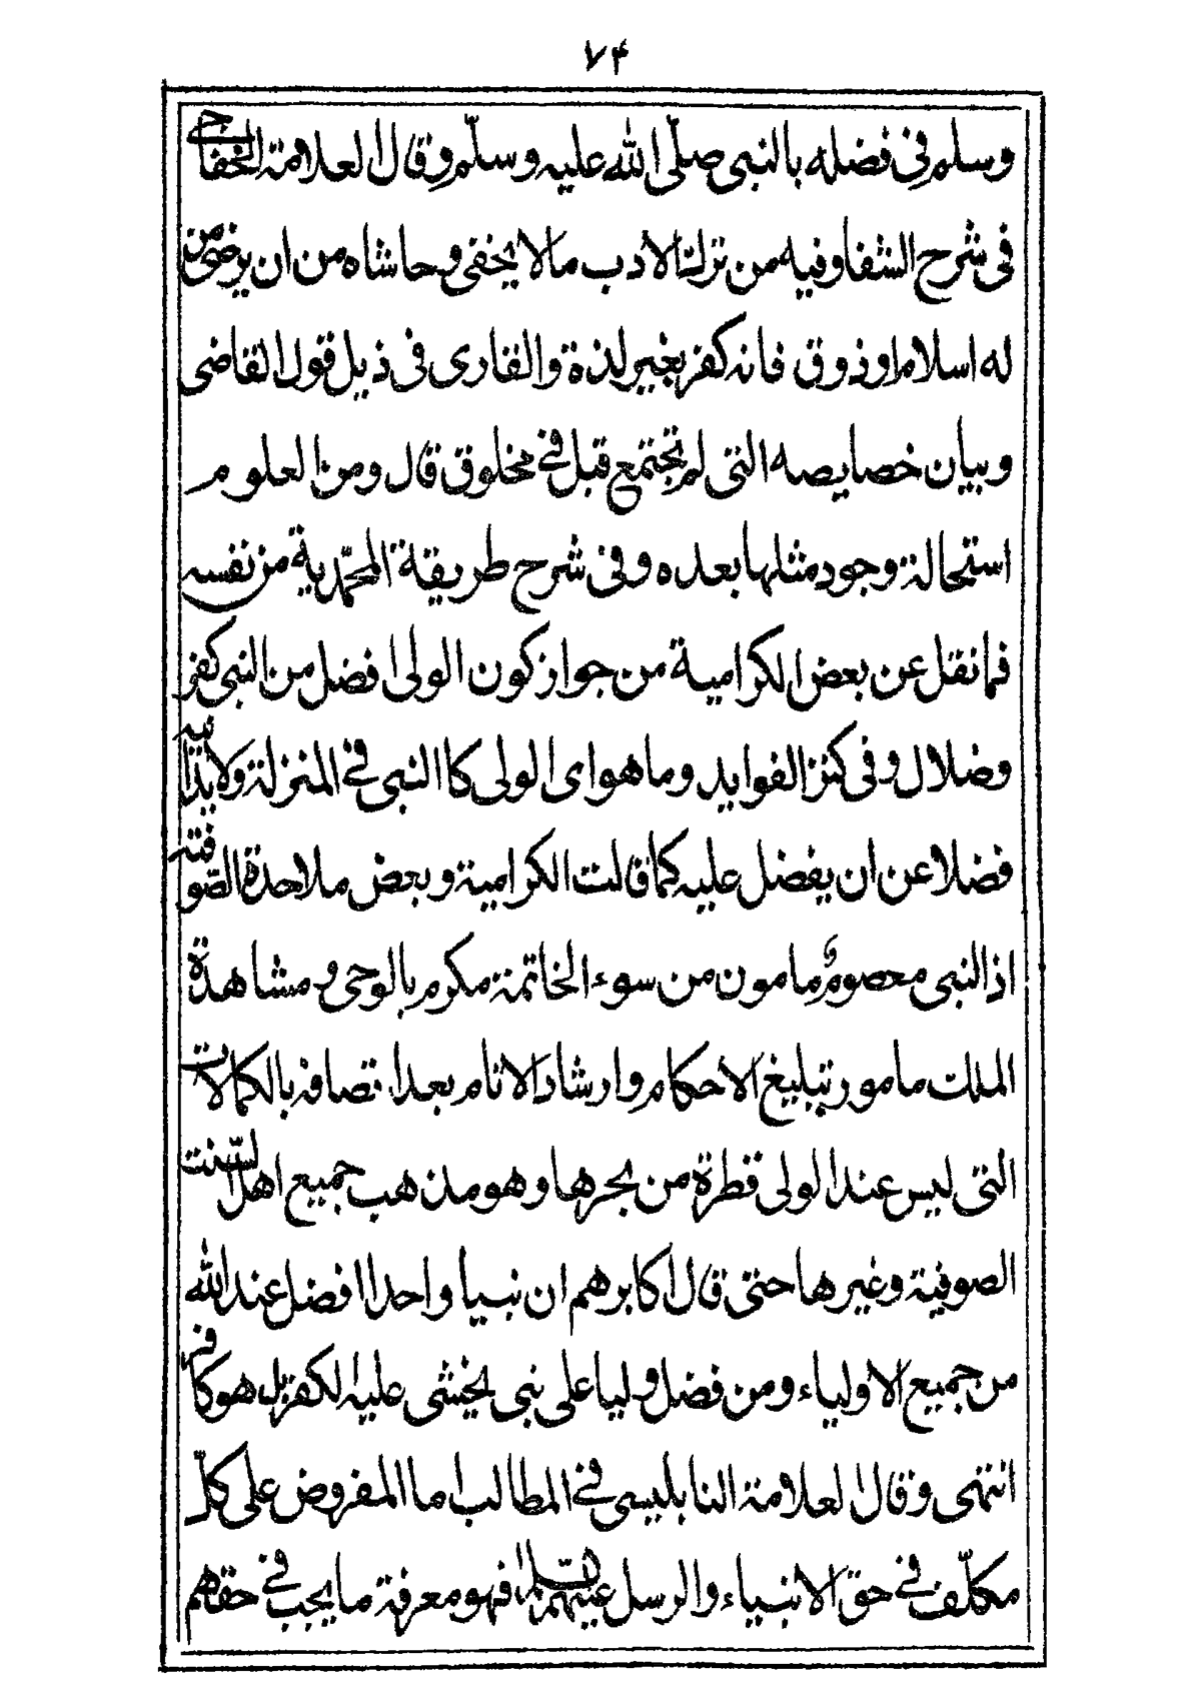 ۷۴
وسلم فى فضله بالنبى صلّى الله عليه وسلّم وقال العلامة الخفاجى
فى شرح الشفا وفيه من ترك الادب ما لا يخفى وحاشاه من ان يرضى من
له اسلام او ذوق فانه كفر بغير لذة والقارى فى ذيل قول القاضى
وبيان خصايصه التى لم تجتمع قبل فى مخلوق قال ومن العلوم
استحالة وجود مثلها بعده وفى شرح طريقة المحمّدية من نفسه
فما نقل عن بعض الكرامية من جواز كون الولى افضل من النبى كفر
وضلال وفى كنز الفوايد وما هو اى الولى كا النبى فى المنزلة ولا يدانيه
فضلا عن ان يفضل عليه كما قالت الكرامية وبعض ملاحدة الصّوفية
اذ النبى معصوم ومامون من سوء الخاتمة مكرم بالوحى ومشاهدة
الملك مامور بتبليغ الاحكام وارشاد الانام بعد اتصافه بالكمالات
التى ليس عند الولى قطرة من بحرها وهو مذهب جميع اهل السّنت
الصوفية وغيرها حتى قال اكابرهم ان نبيا واحدا افضل عند الله
من جميع الاولياء ومن فضل وليا على نبى يخشى عليه الكفر بل هو كافر
انتهى وقال العلامة النابليسى فى المطالب اما المفروض على كلّ
مكلّف فى حق الانبياء والرسل عليهم السّلام فهو معرفة ما يجب فى حقهم